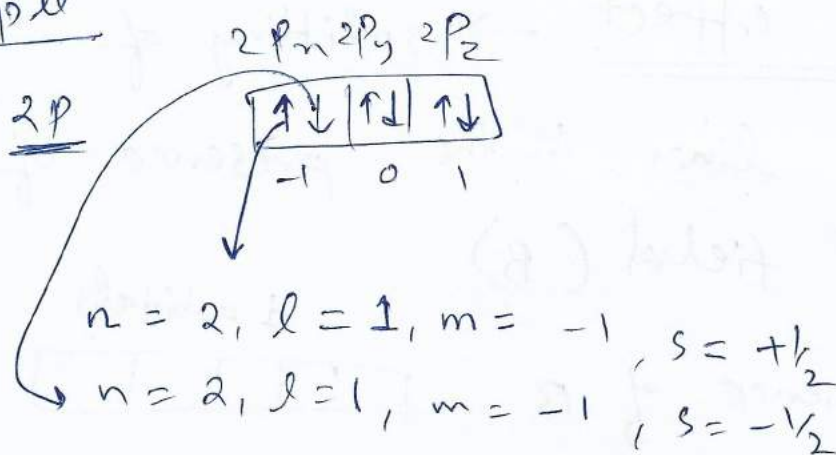 2Px 2Py 2Pz
2P ↑↓ ↑↓ ↑↓
-1 0 1
n = 2, l = 1, m = -1, s = +1/2
n = 2, l = 1, m = -1, s = -1/2